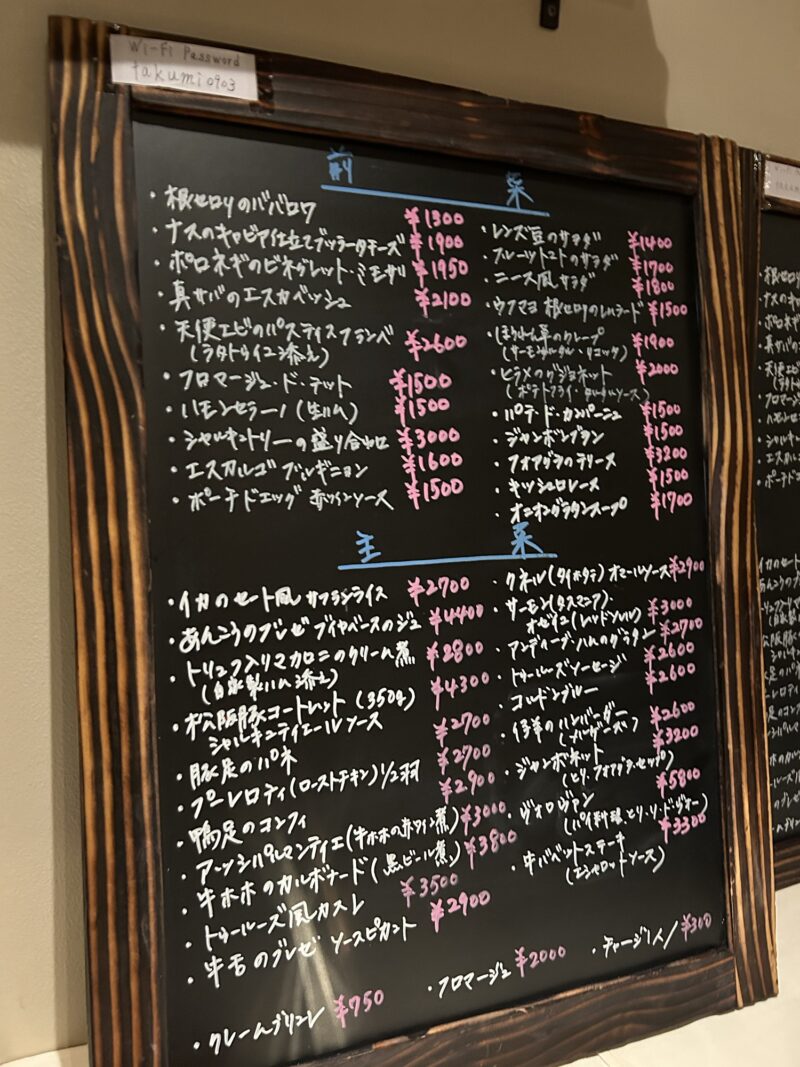 Wi-Fi Password
takumi0903
前菜
・根セロリのババロワ ¥1300
・ナスのキャビア仕立てブッラータチーズ ¥1900
・ポロネギのビネグレット・ミモザ ¥1950
・真サバのエスカベッシュ ¥2100
・天使エビのパスティスフランベ ¥2600
(ラタトゥイユ添え)
・フロマージュ・ド・テット ¥1500
・ハモンセラーノ(生ハム) ¥1500
・シャルキュトリーの盛り合わせ ¥3000
・エスカルゴ ブルギニョン ¥1600
・ポーチドエッグ 赤ワインソース ¥1500
・レンズ豆のサラダ ¥1400
・フルーツトマトのサラダ ¥1700
・ニース風サラダ ¥1800
・ウフマヨ 根セロリのレムラード ¥1500
・ほうれん草のクレープ ¥1900
(サーモン・リコッタ)
・ヒラメのグジョネット ¥2000
(ポテトフライ・タルタルソース)
・パテ・ド・カンパーニュ ¥1500
・ジャンボンブラン ¥1500
・フォアグラのテリーヌ ¥3200
・キッシュロレーヌ ¥1500
・オニオングラタンスープ ¥1700
主菜
・イカのセート風 サフランライス ¥2700
・あんこうのブレゼ ブイヤベースのジュ ¥4400
・トリュフ入りマカロニのクリーム煮 ¥2800
(自家製ハム添え)
・松阪豚コートレット(350g) ¥4300
シャルキュティエールソース
・豚足のパネ ¥2700
・プーレロティ(ローストチキン)1/2羽 ¥2700
・鴨足のコンフィ ¥2900
・アッシパルマンティエ(牛ホホの赤ワイン煮) ¥3000
・牛ホホのカルボナード(黒ビール煮) ¥3800
・トゥールーズ風カスレ ¥3500
・牛舌のブレゼ ソースピカント ¥2900
・クネル(タイホタテ)オマールソース ¥2900
・サーモン(タスマニア)・ ¥3000
オゼイユ(レッドソレル)
・アンディーブ・ハムのグラタン ¥2700
・トゥールーズソーセージ ¥2600
・コルドンブルー ¥2600
・仔羊のハンバーガー ¥2600
・ジャンボネット ¥3200
(とり、フォアグラ・セップ)
・ヴォロヴァン ¥5800
(パイ料理 とり・リ・ド・ヴォー)
・牛バベットステーキ ¥3300
(エシャロットソース)
・クレームブリュレ ¥750
・フロマージュ ¥2000
・チャージ1人/¥300